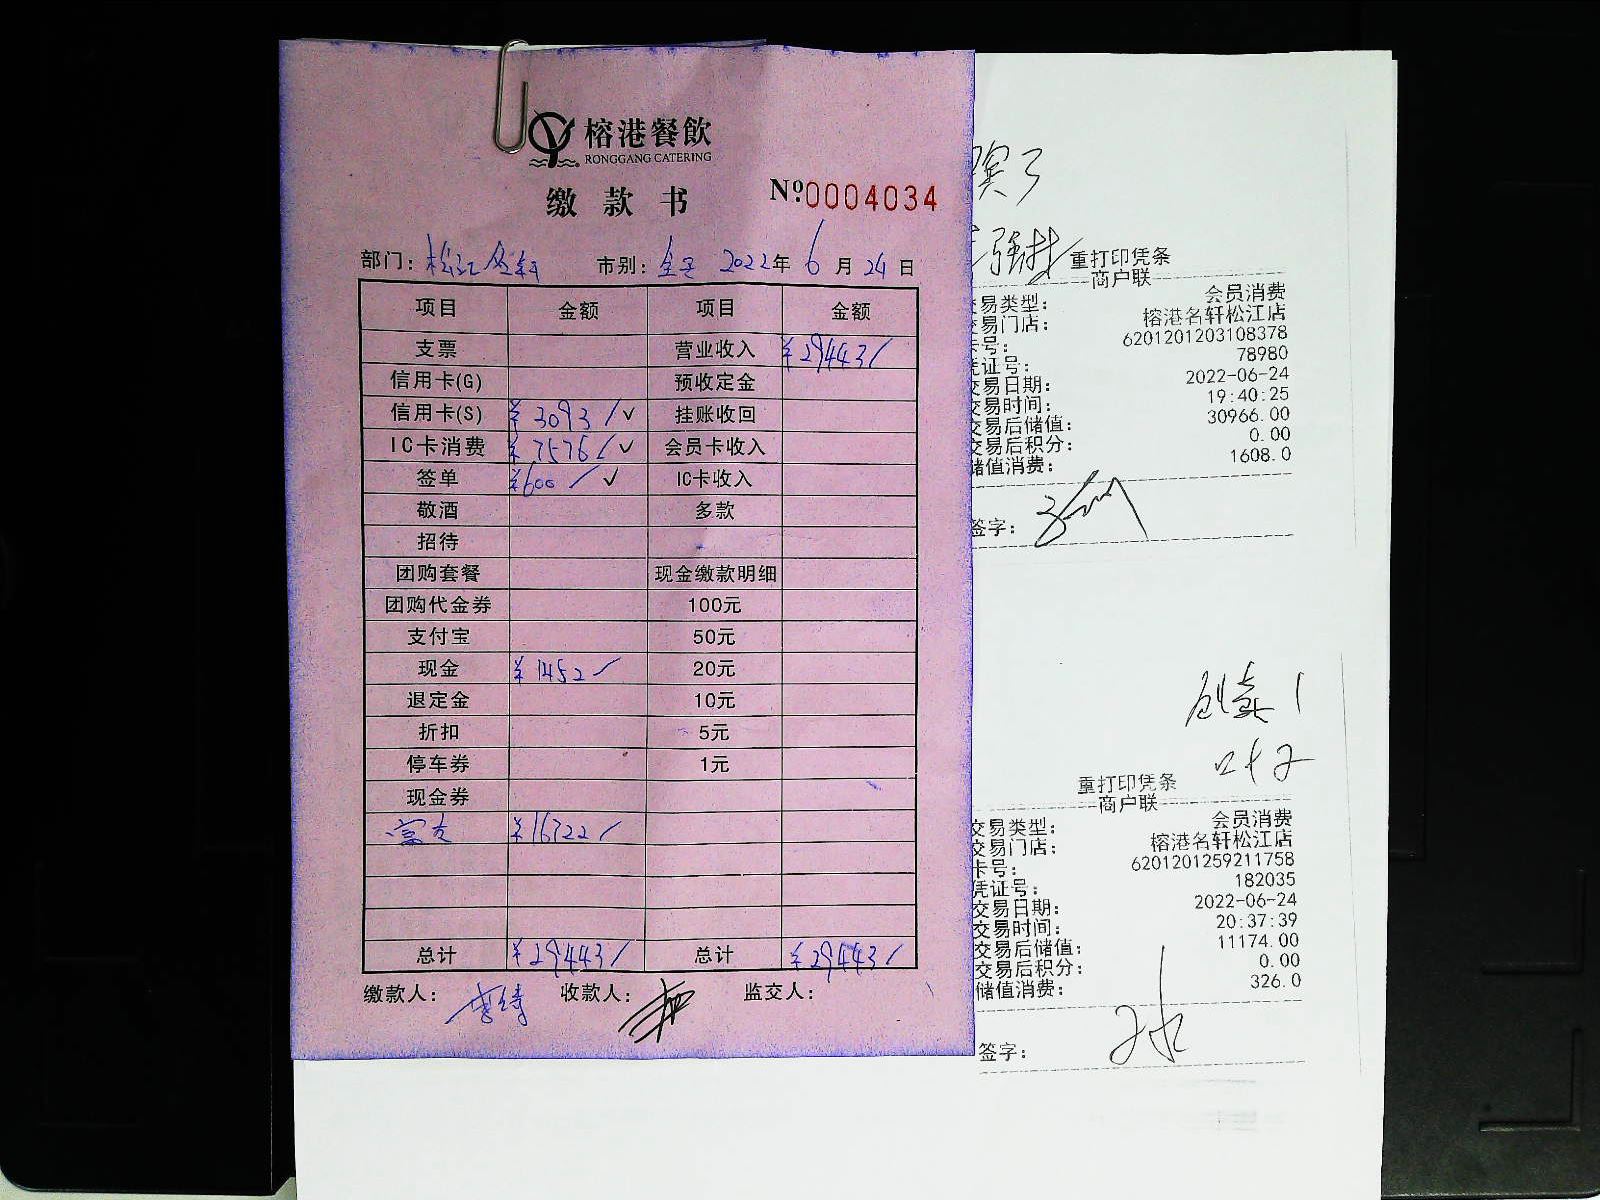 榕港餐飲
RONGGANG CATERING
缴款书
№0004034
部门: 松江 市别: 全天 2022年 6月 24日
项目 金额 项目 金额
支票 营业收入 ¥29443/
信用卡(G) 预收定金
信用卡(S) ¥3093/ √ 挂账收回
IC卡消费 ¥7576/ √ 会员卡收入
签单 ¥600/ √ IC卡收入
敬酒 多款
招待
团购套餐 现金缴款明细
团购代金券 100元
支付宝 50元
现金 ¥1452/ 20元
退定金 10元
折扣 5元
停车券 1元
现金券
富友 ¥16722/
总计 ¥29443/ 总计 ¥29443/
缴款人: 收款人: 监交人:
重打印凭条
商户联
交易类型: 会员消费
交易门店: 榕港名轩松江店
卡号: 6201201203108378
凭证号: 78980
交易日期: 2022-06-24
交易时间: 19:40:25
交易后储值: 30966.00
交易后积分: 0.00
储值消费: 1608.0
签字:
重打印凭条
商户联
交易类型: 会员消费
交易门店: 榕港名轩松江店
卡号: 6201201259211758
凭证号: 182035
交易日期: 2022-06-24
交易时间: 20:37:39
交易后储值: 11174.00
交易后积分: 0.00
储值消费: 326.0
签字: